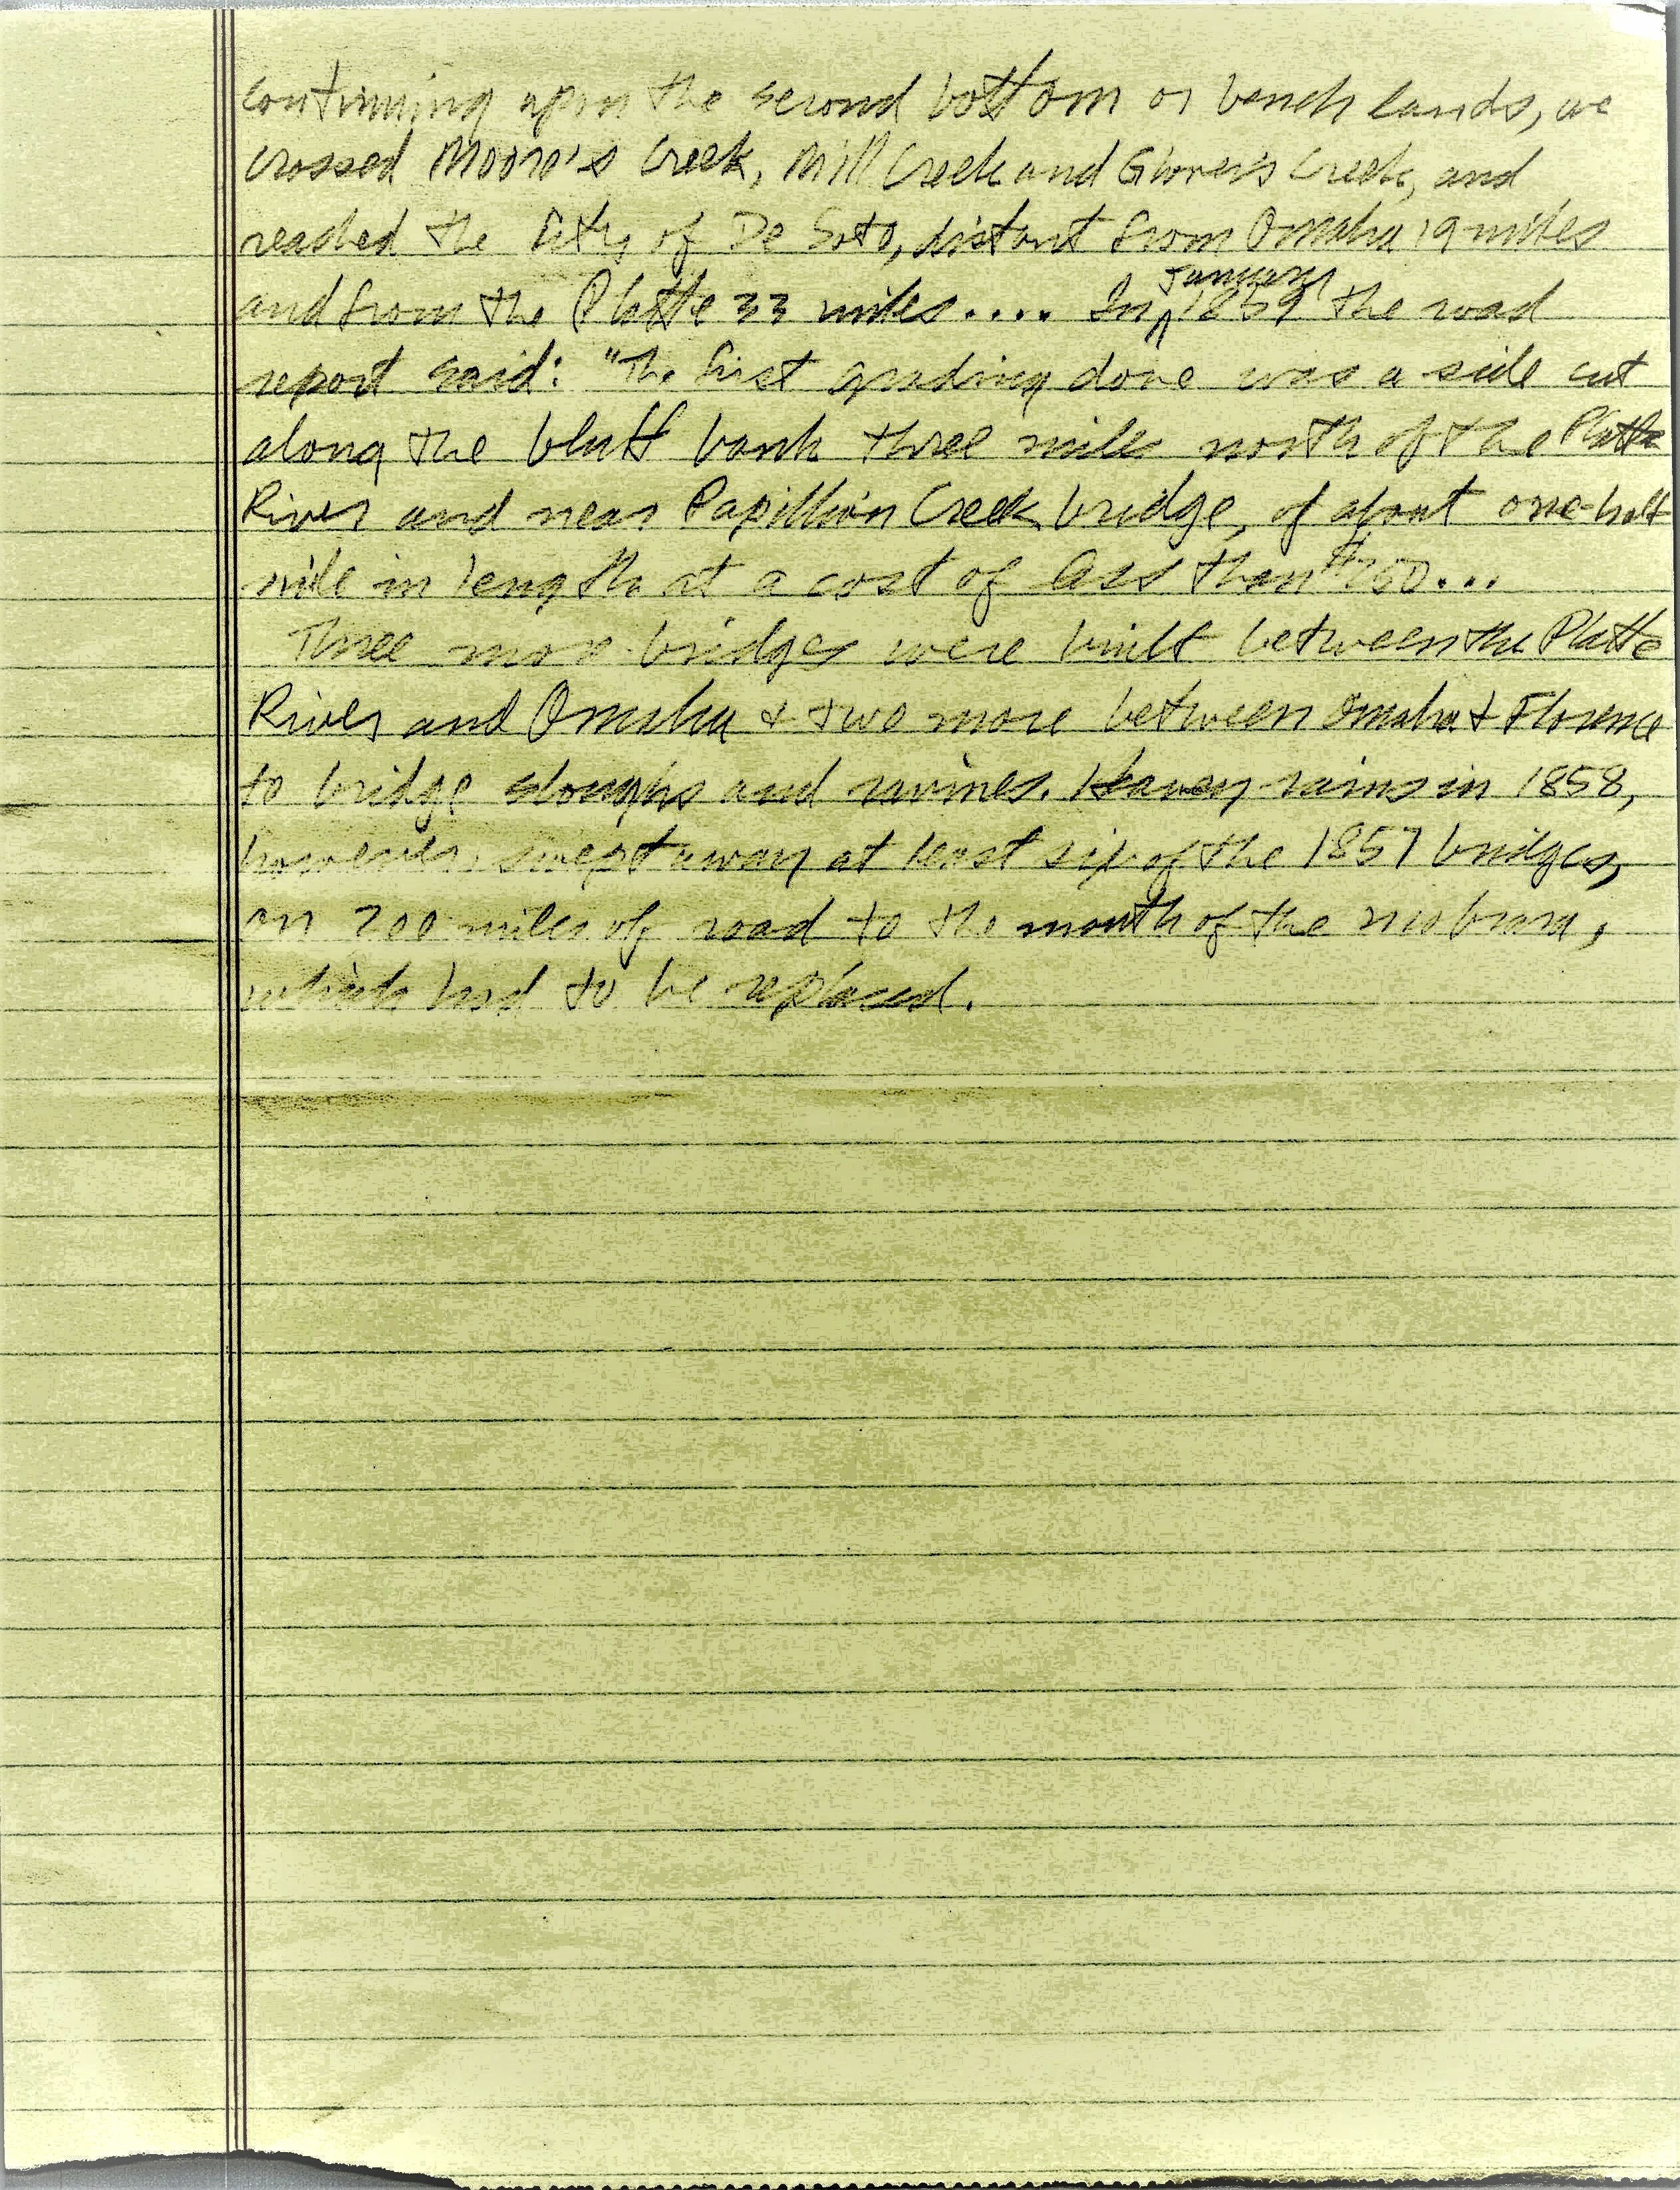 continuing upon the second bottom or bench lands, we
crossed Moore's Creek, Mill Creek and Glover's Creek, and
reached the City of De Soto, distant from Omaha 19 miles
and from the Platte 33 miles.... In January 1859 the road
report said: "The first grading done was a side cut
along the bluff bank three miles north of the Platte
River and near Papillion Creek bridge, of about one-half
mile in length at a cost of less than $250...
Three more bridges were built between the Platte
River and Omaha & two more between Omaha & Florence
to bridge sloughs and ravines. Heavy rains in 1858,
however, swept away at least six of the 1857 bridges,
on 200 miles of road to the mouth of the Niobrara,
which had to be replaced.